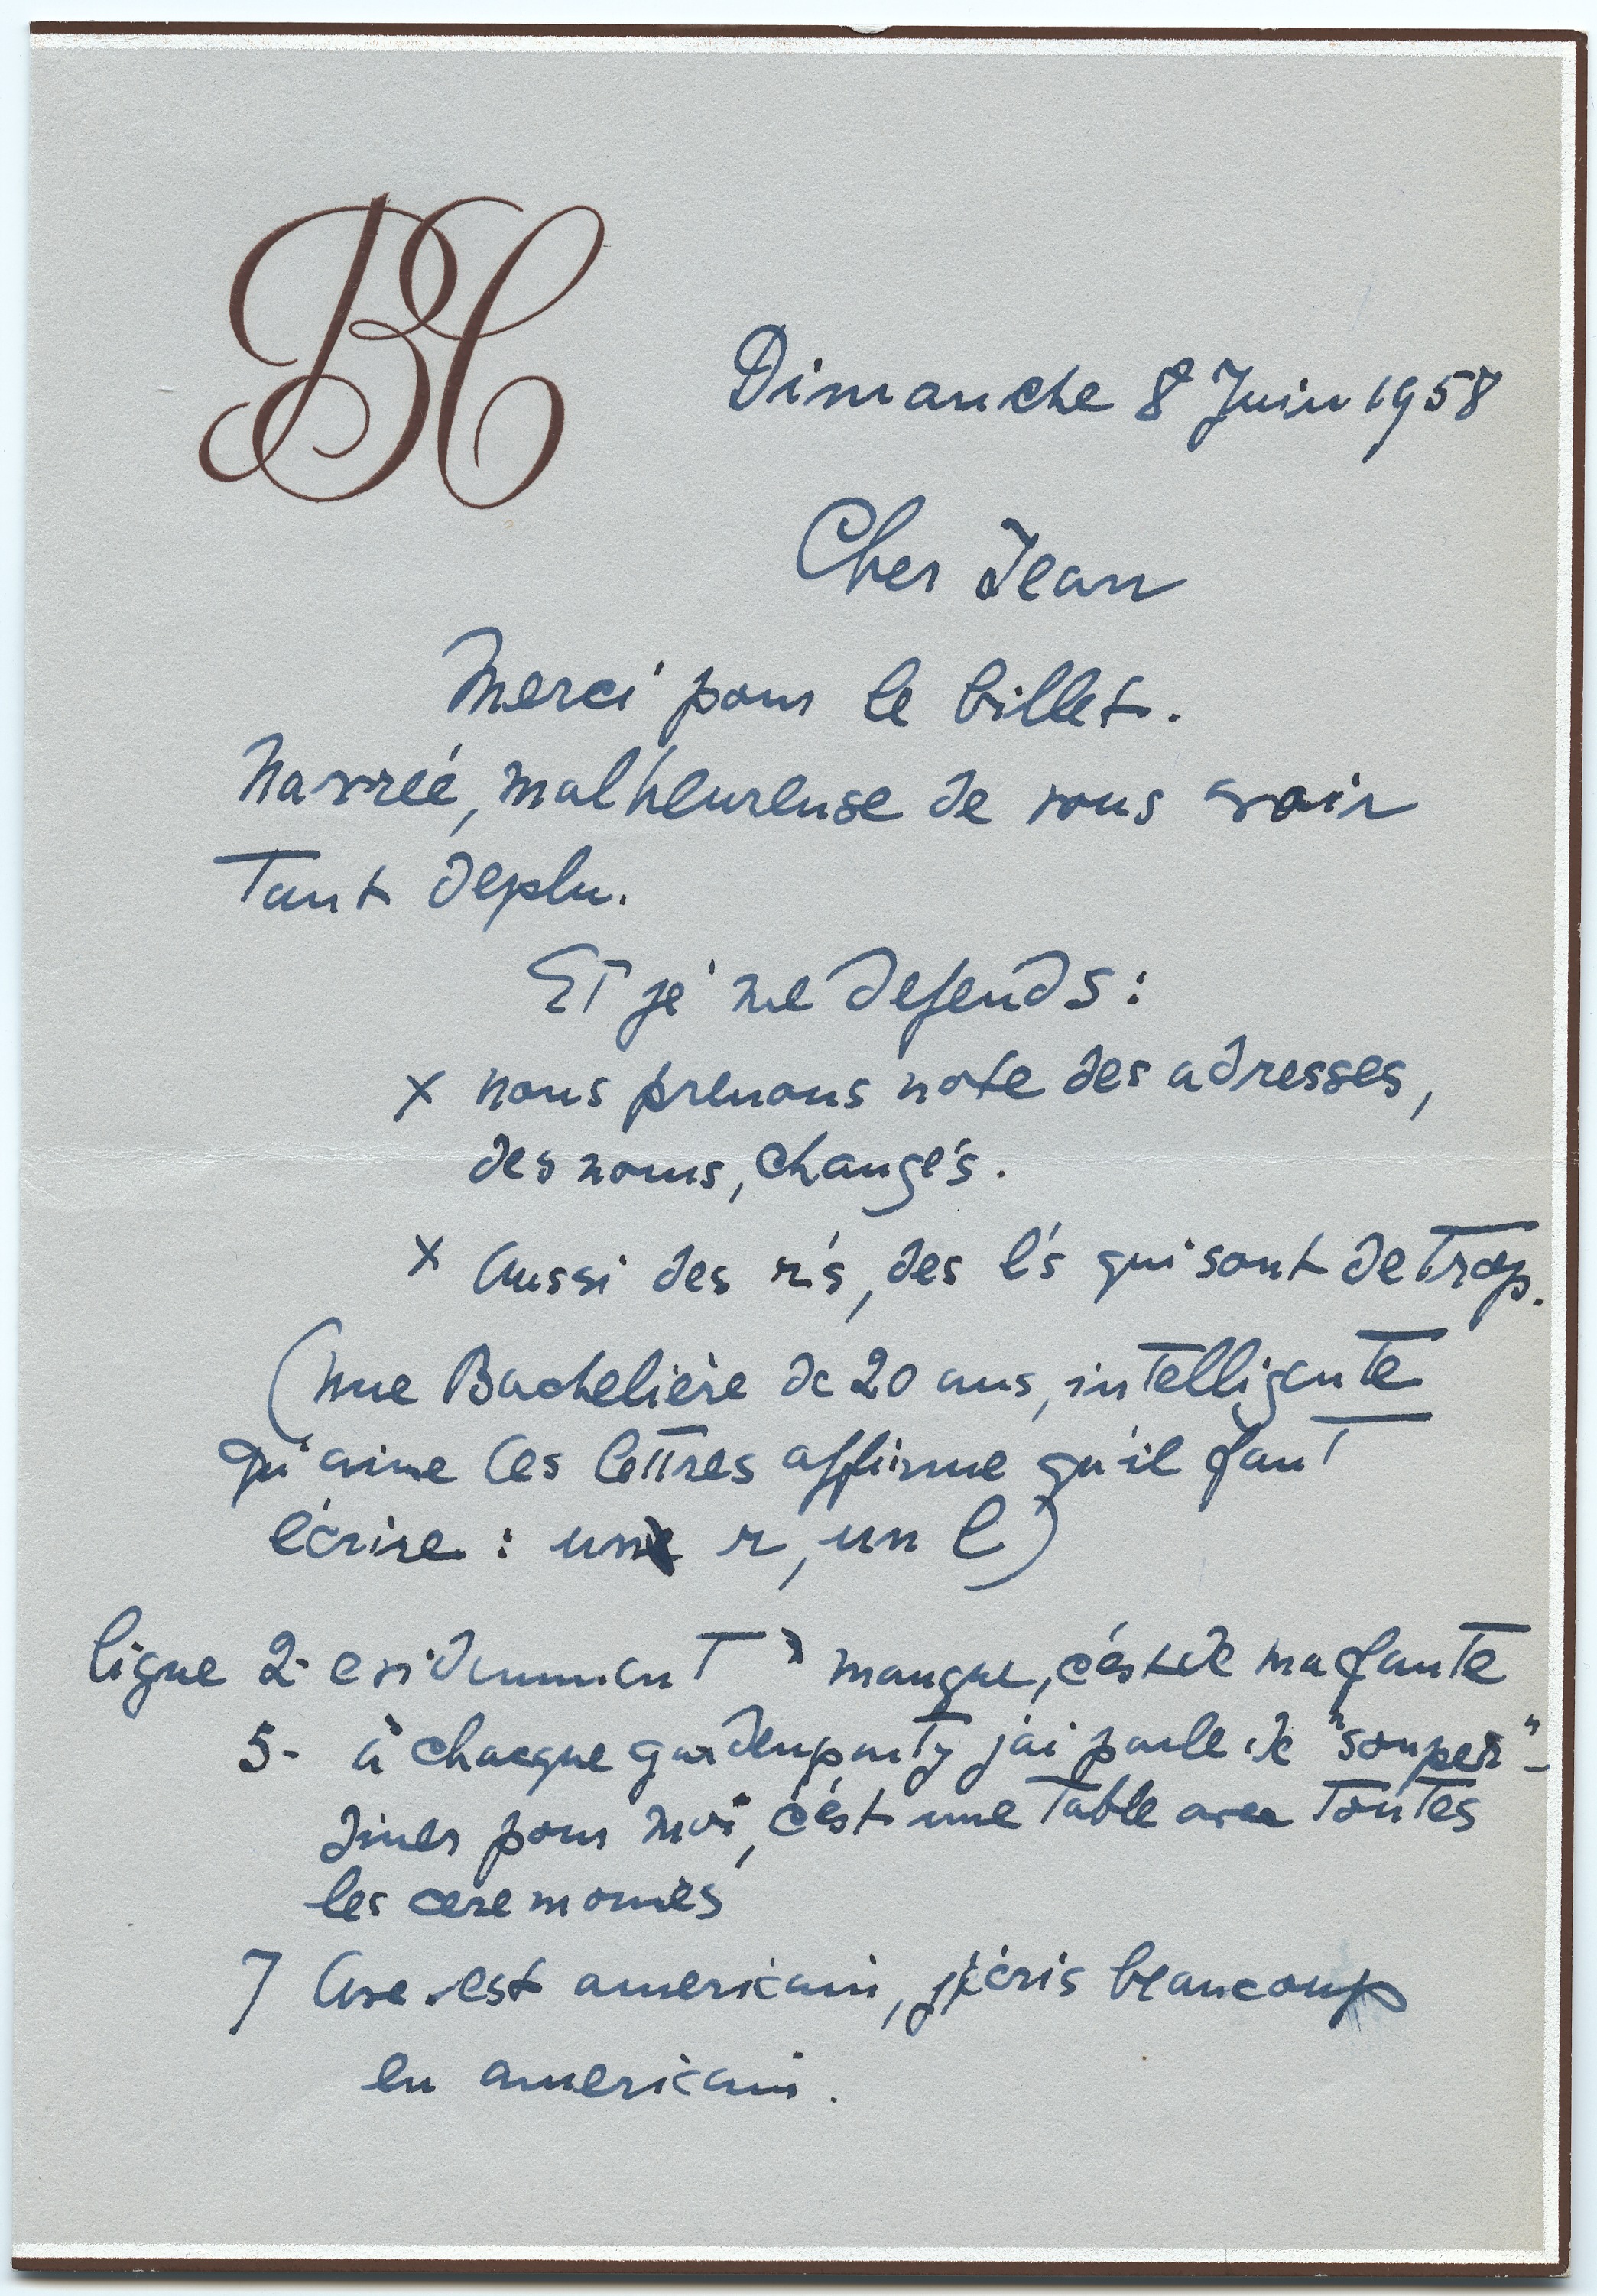 BC
Dimanche 8 Juin 1958
Cher Jean
Merci pour le billet.
Navrée, malheureuse de vous avoir
Tant deplu.
ET je me defends :
x nous prenons note des adresses,
des noms, changés.
x Aussi des r's, des l's qui sont de Trop.
(une Bachelière de 20 ans, intelligente
qui aime les lettres affirme qu'il faut
écrire : un r, un l)
ligne 2- evidemment manque, c'est de ma faute
5- à chaque gardenparty j'ai parle de "souper" -
diner pour moi, c'est une Table avec Toutes
les ceremonies
7 est americain, j'écris beaucoup
en americain.